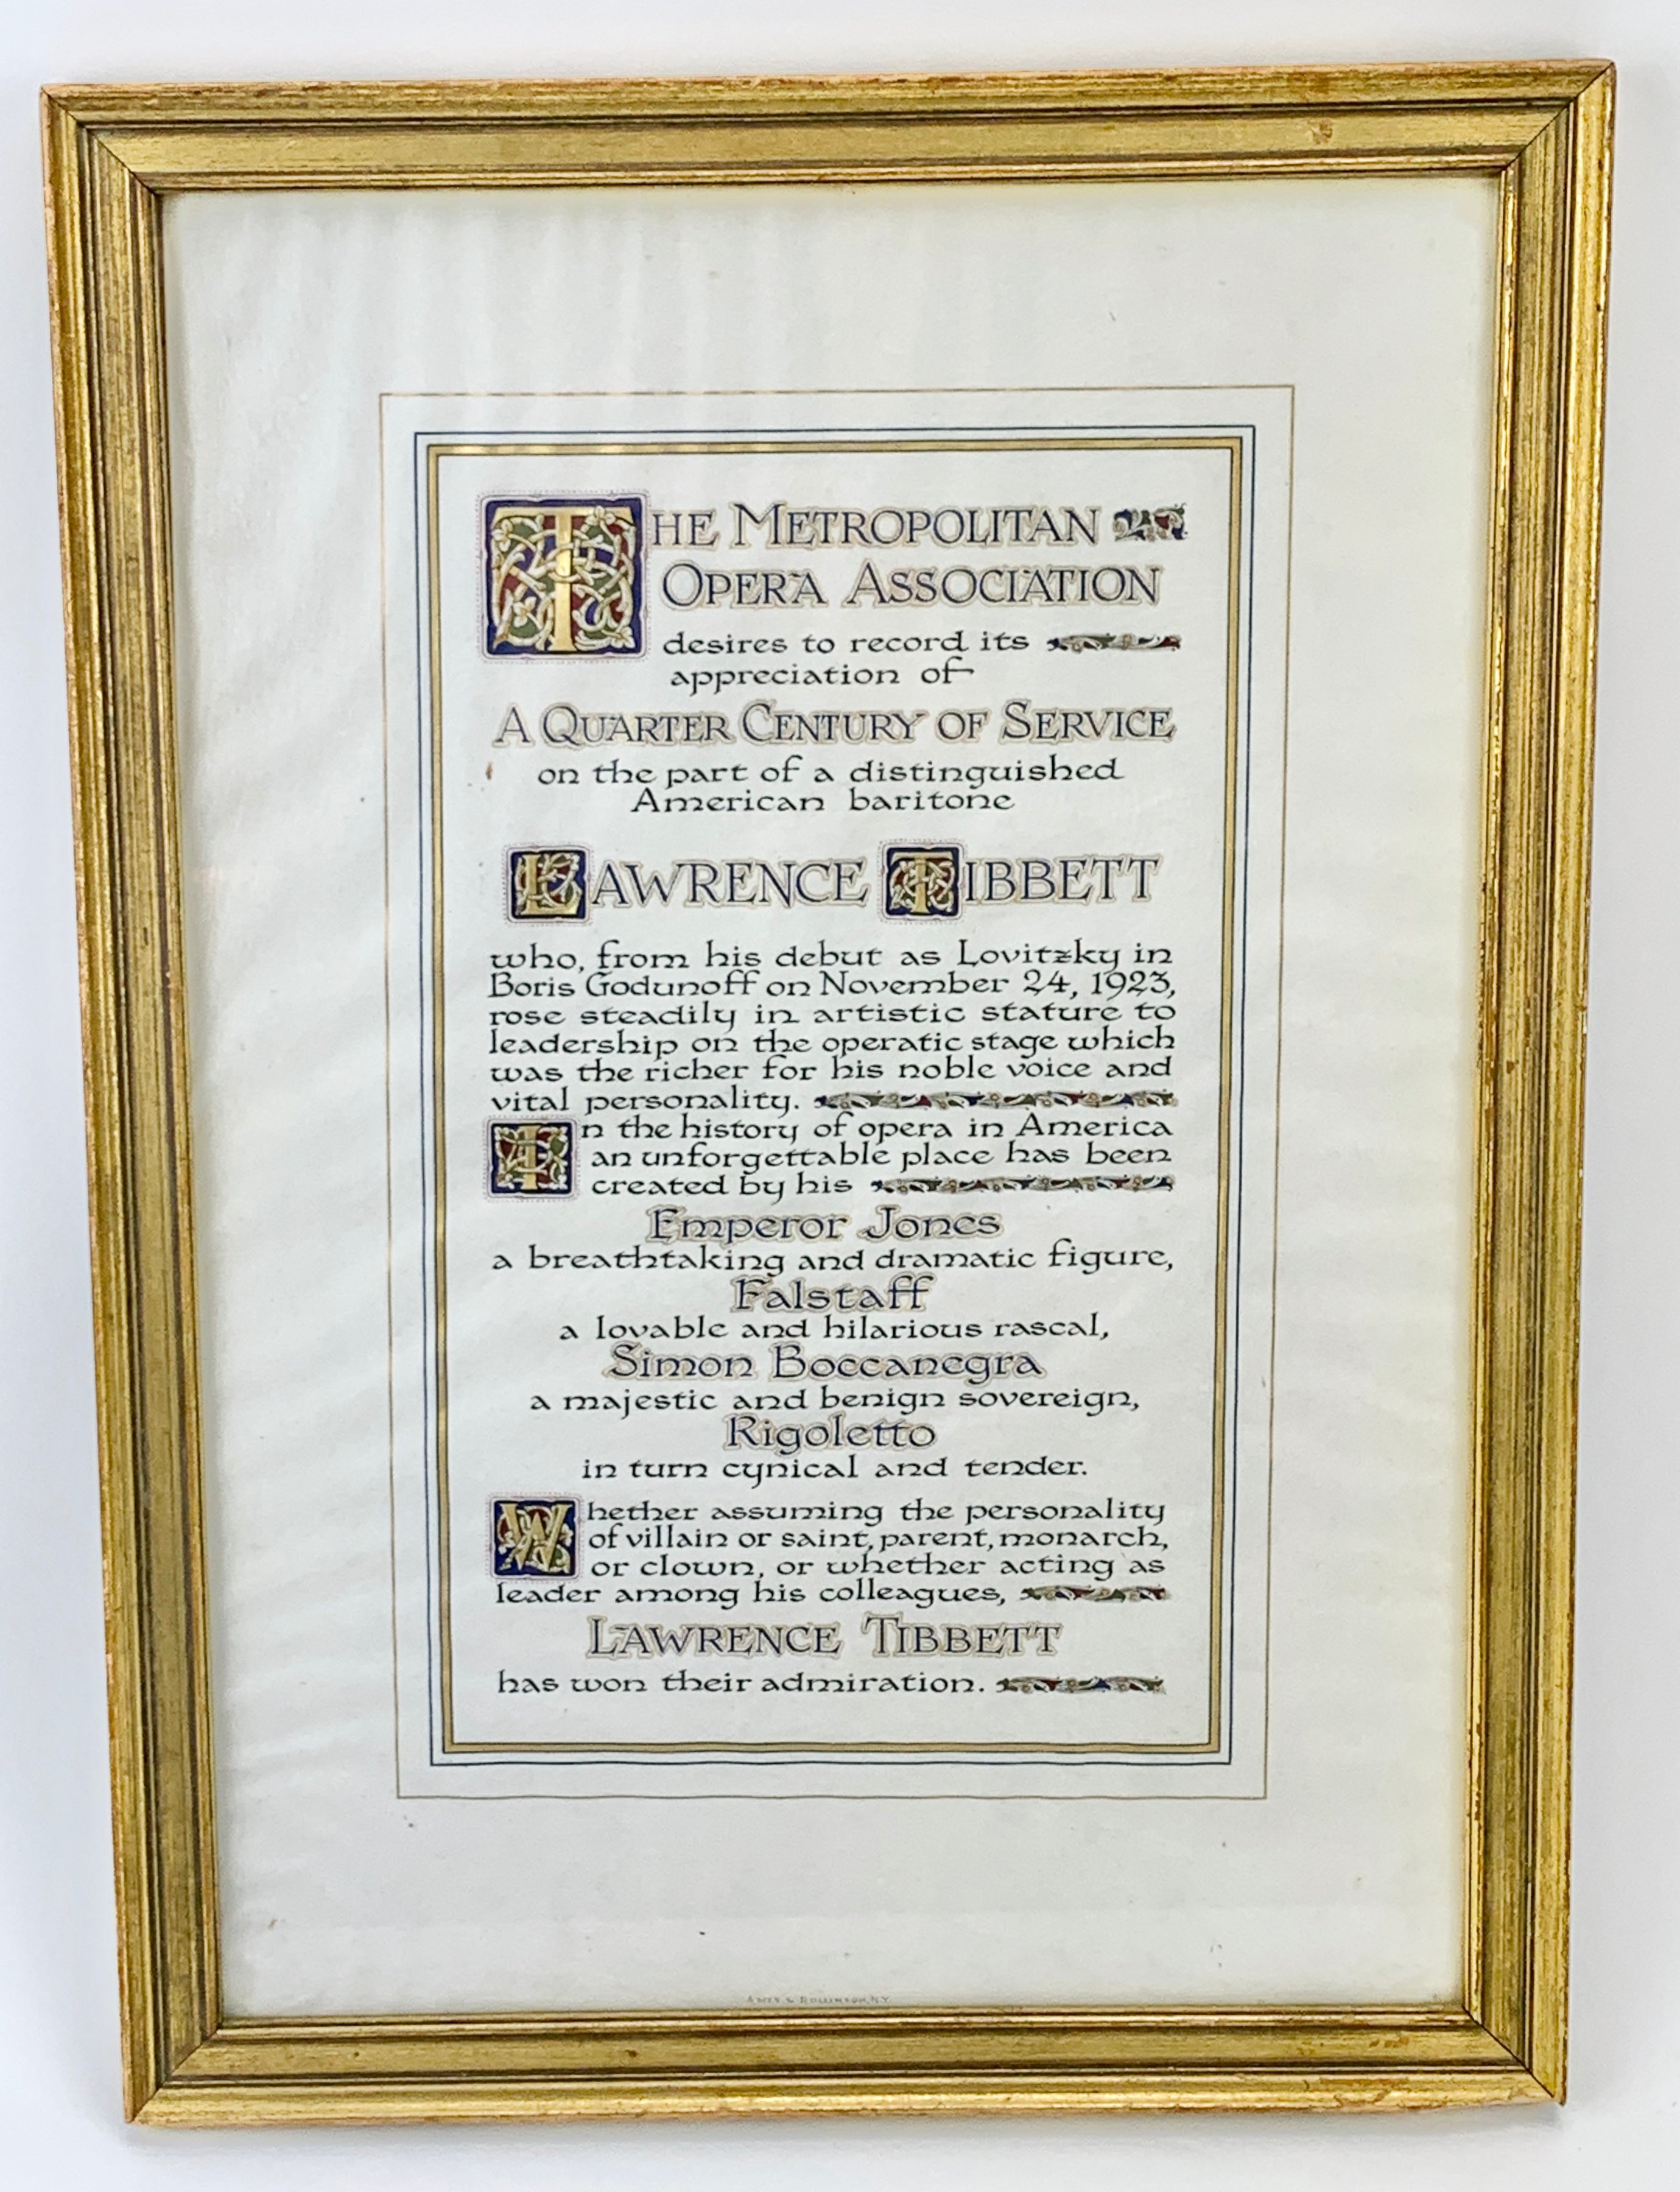 THE METROPOLITAN
OPERA ASSOCIATION
desires to record its
appreciation of
A QUARTER CENTURY OF SERVICE
on the part of a distinguished
American baritone
LAWRENCE TIBBETT
who, from his debut as Lovitzky in
Boris Godunoff on November 24, 1923,
rose steadily in artistic stature to
leadership on the operatic stage which
was the richer for his noble voice and
vital personality.
In the history of opera in America
an unforgettable place has been
created by his
Emperor Jones
a breathtaking and dramatic figure,
Falstaff
a lovable and hilarious rascal,
Simon Boccanegra
a majestic and benign sovereign,
Rigoletto
in turn cynical and tender.
Whether assuming the personality
of villain or saint, parent, monarch,
or clown, or whether acting as
leader among his colleagues,
LAWRENCE TIBBETT
has won their admiration.
AMES & ROLLINSON, N.Y.